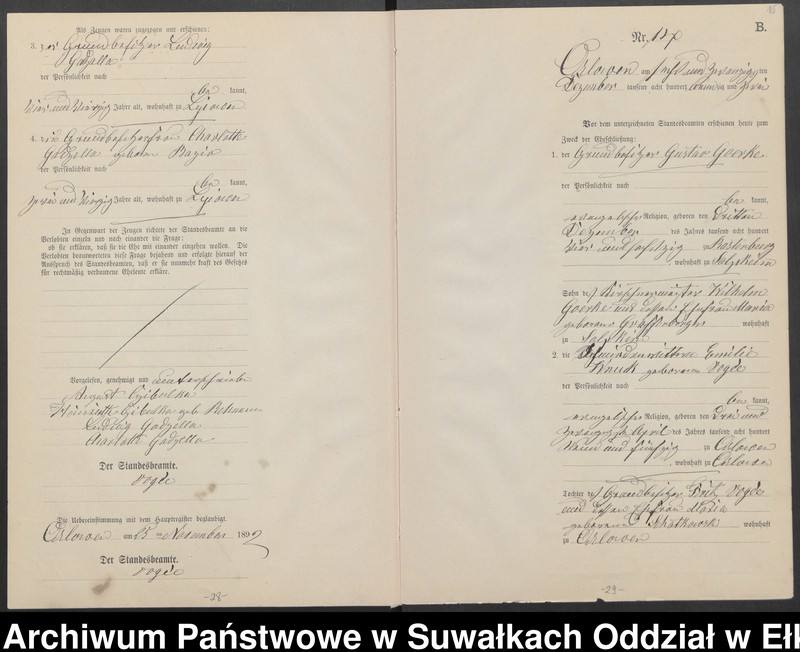 Als Zeugen waren zugezogen und erschienen:
3. der Grundbesitzer Ludwig
Gadzella
der Persönlichkeit nach
be kannt,
vier und vierzig Jahre alt, wohnhaft zu
4. die Grundbesitzerfrau Charlotte
Gadzella geborene
der Persönlichkeit nach
be kannt,
zwei und vierzig Jahre alt, wohnhaft zu
In Gegenwart der Zeugen richtete der Standesbeamte an die
Verlobten einzeln und nach einander die Frage:
ob sie erklären, daß sie die Ehe mit einander eingehen wollen. Die
Verlobten beantworteten diese Frage bejahend und erfolgte hierauf der
Ausspruch des Standesbeamten, daß er sie nunmehr kraft des Gesetzes
für rechtmäßig verbundene Eheleute erkläre.
Vorgelesen, genehmigt und unterschrieben
August Czibulka
Czibulka geb
Ludwig Gadzella
Charlotte Gadzella
Der Standesbeamte.
Vogée
Die Uebereinstimmung mit dem Hauptregister beglaubigt.
am 25 ten November 1892
Der Standesbeamte.
Vogée
-28-
B.
Nr. 127
am fünf und zwanzig ten
Dezember tausend acht hundert neunzig und zwei
Vor dem unterzeichneten Standesbeamten erschienen heute zum
Zweck der Eheschließung:
1. der Grundbesitzer Gustav Goerke
der Persönlichkeit nach
be kannt,
evangelischer Religion, geboren den dritten
Dezember des Jahres tausend acht hundert
vier und sechszig zu Rastenburg
, wohnhaft zu Salpkeim
Sohn des Wilhelm
Goerke und dessen Ehefrau Maria
geborene wohnhaft
zu Salpkeim
2. die Emilie
geborene Vogée
der Persönlichkeit nach
be kannt,
evangelischer Religion, geboren den drei und
zwanzigsten April des Jahres tausend acht hundert
neun und fünfzig zu
, wohnhaft zu
Tochter des Grundbesitzer Fritz Vogée
und dessen Ehefrau Maria
geborene wohnhaft
zu
-29-
Archiwum Państwowe w Suwałkach Oddział w Ełk